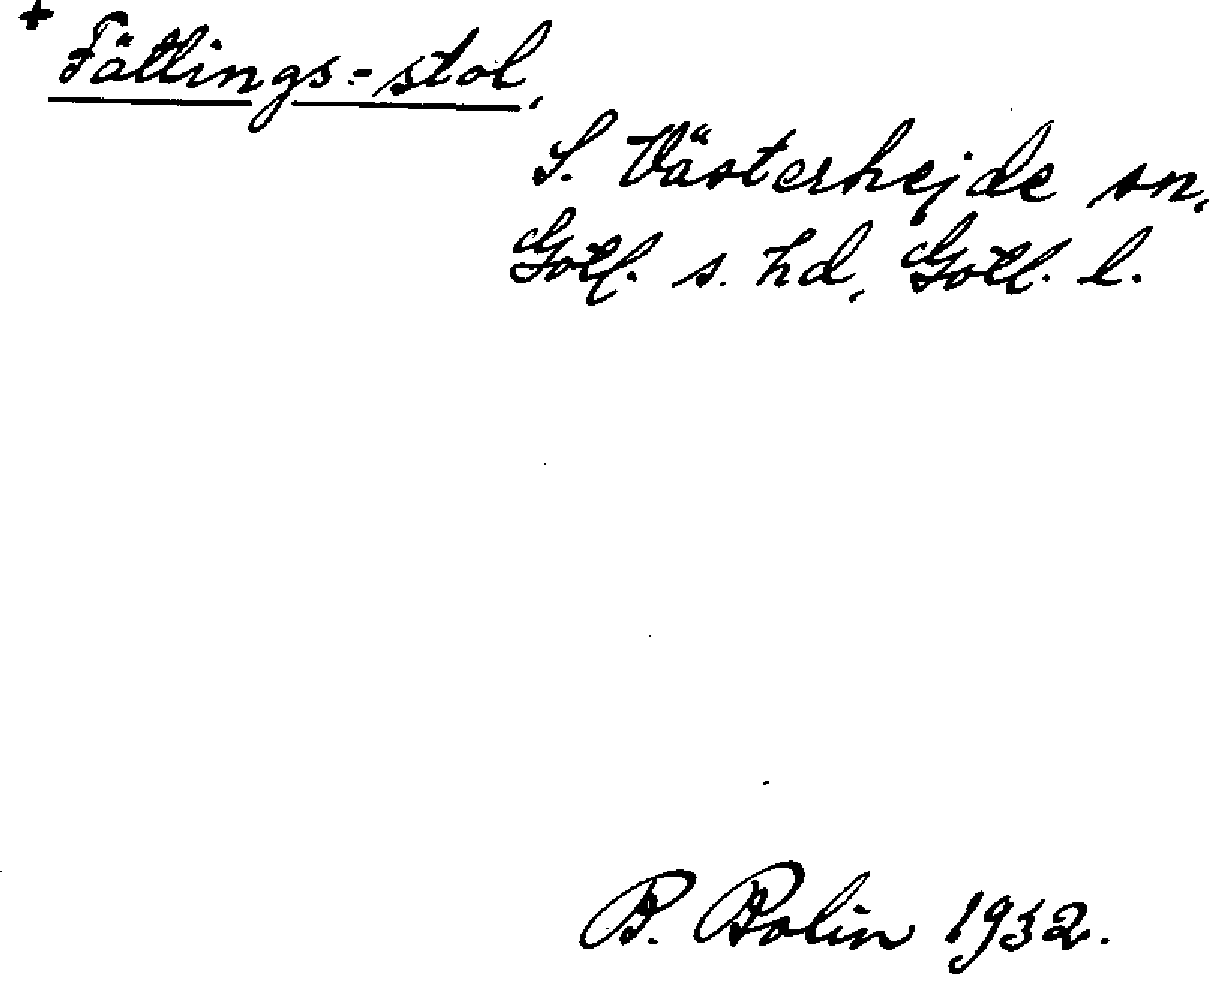 +
Fätlings-stol,
S. Västerhejde sn,
Gotl. s. hd, Gotl. l.
B. Bolin 1932.